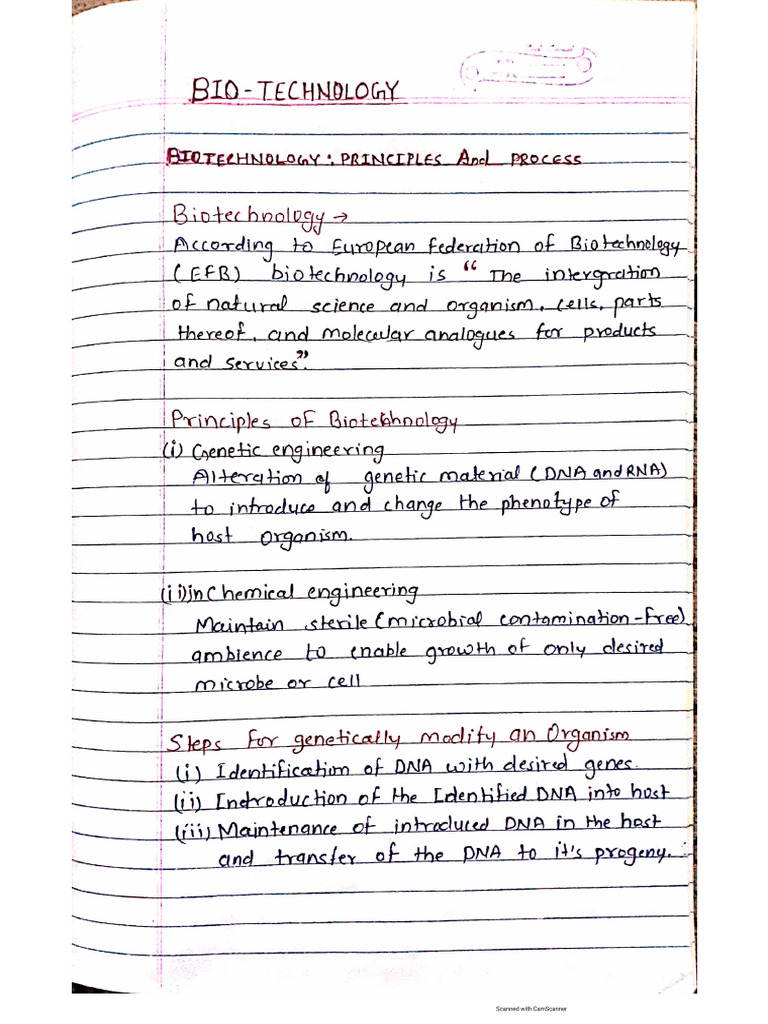 BIO-TECHNOLOGY
BIOTECHNOLOGY: PRINCIPLES And PROCESS
Biotechnology →
According to European federation of Biotechnology
(EFB) biotechnology is “The intergration
of natural science and organism, cells, parts
thereof, and molecular analogues for products
and services”.
Principles of Biotechnology
(i) Genetic engineering
Alteration of genetic material (DNA and RNA)
to introduce and change the phenotype of
host organism.
(ii) in Chemical engineering
Maintain sterile (microbial contamination-free)
ambience to enable growth of only desired
microbe or cell
Steps for genetically modify an Organism
(i) Identification of DNA with desired genes.
(ii) Introduction of the Identified DNA into host
(iii) Maintenance of introduced DNA in the host
and transfer of the DNA to it's progeny.
Scanned with CamScanner